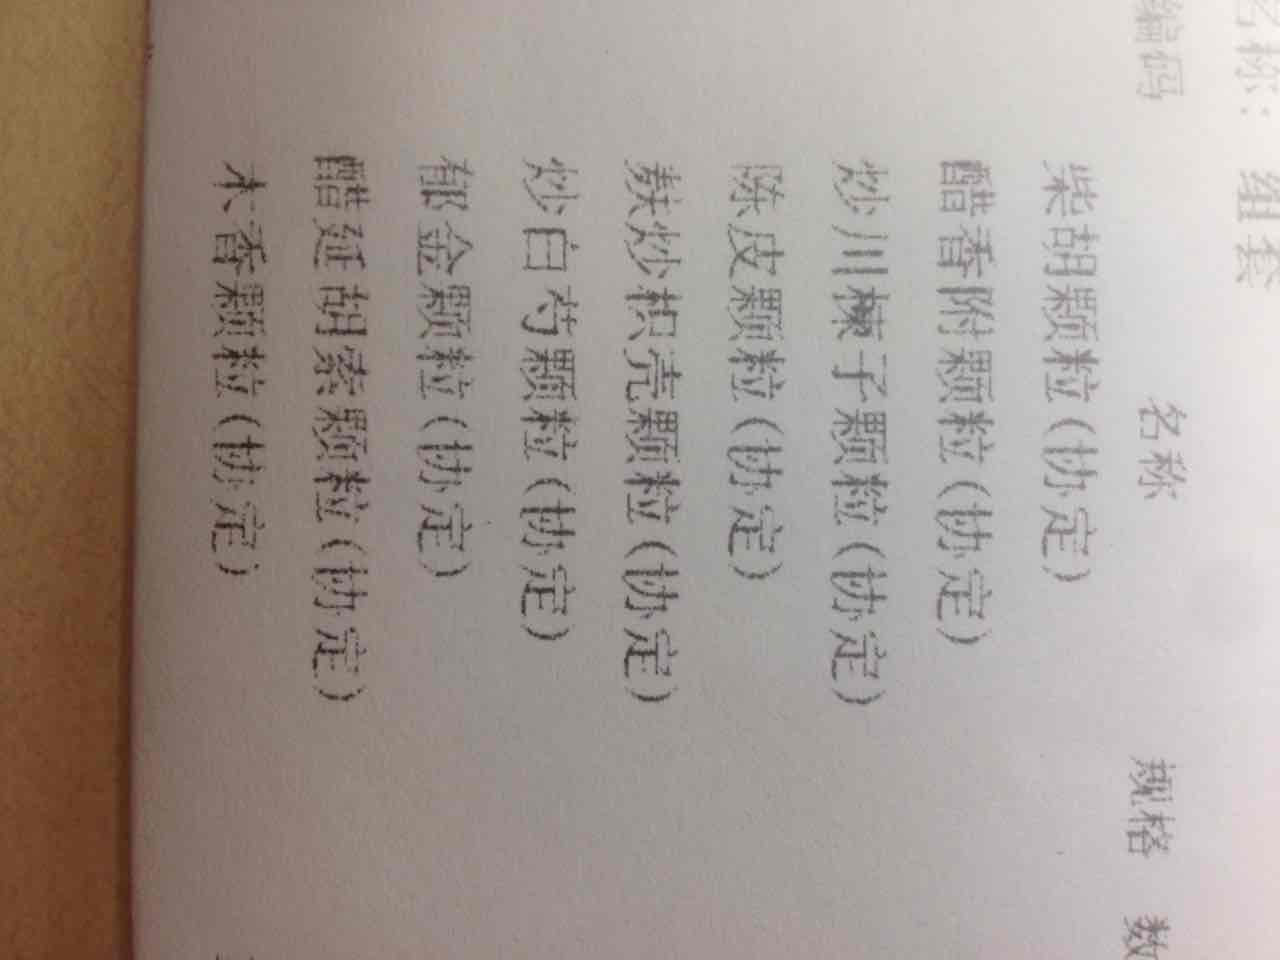 名称: 组套
编码 名称 规格 数
柴胡颗粒(协定)
醋香附颗粒(协定)
炒川楝子颗粒(协定)
陈皮颗粒(协定)
麸炒枳壳颗粒(协定)
炒白芍颗粒(协定)
郁金颗粒(协定)
醋延胡索颗粒(协定)
木香颗粒(协定)